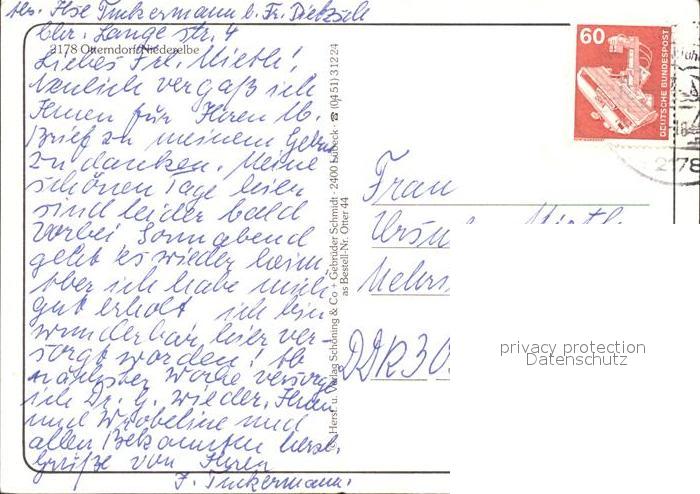 Abs. Ilse Tuckermann b. Fr. Dietzsch
Chr. Lange str. 4
2178 Otterndorf/Niederelbe
Liebes Frl. Mietle!,
Neulich vergaß ich
Ihnen für Ihren lb.
Brief zu meinem Gebu
zu danken. Meine
schönen Tage hier
sind leider bald
vorbei Sonnabend
geht es wieder heim
aber ich habe mich
gut erholt ich bin
wunderbar hier ver-
sorgt worden! Ab
nächster Woche versorge
ich Dr. G. wieder, Ihnen
und Wröbeline und
allen Bekannten herzl.
Grüße von Ihrer
I. Tuckermann.
Herst. u. Verlag Schöning & Co + Gebrüder Schmidt · 2400 Lübeck · ☎ (0451) 31224
as Bestell-Nr. Otter 44
60
DEUTSCHE BUNDESPOST
2178
Frau
Ursu
Mehri
DDR 30
privacy protection
Datenschutz